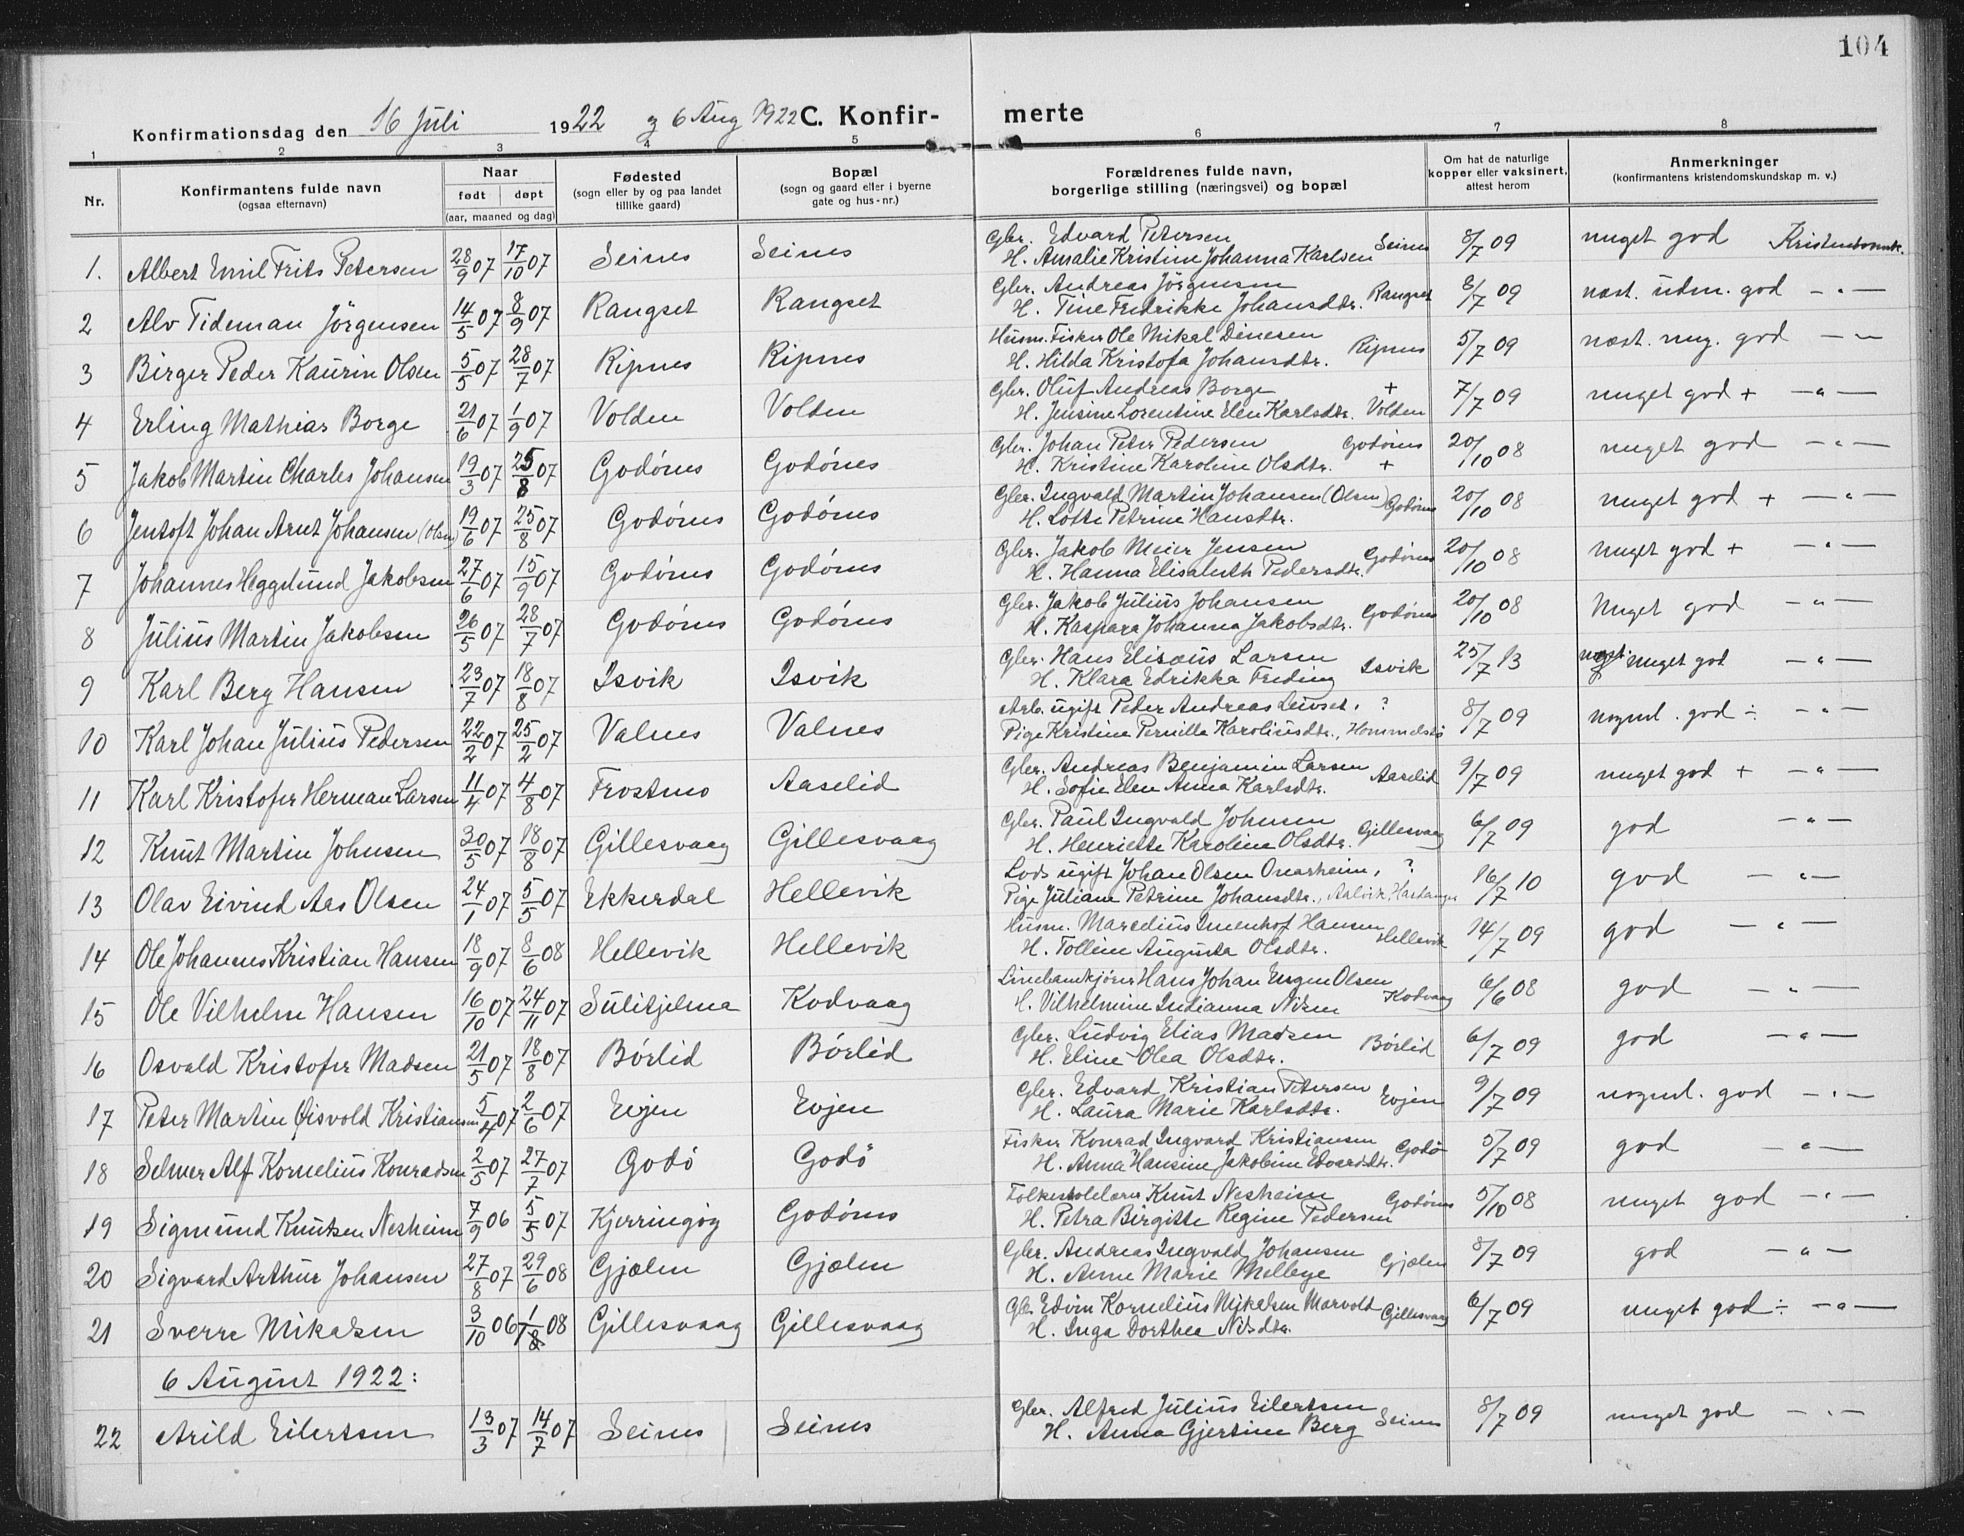 104
Konfirmationsdag den 16 Juli 1922 og 6 Aug 1922 C. Konfirmerte
1 2 3 4 5 6 7 8
Nr. Konfirmantens fulde navn (ogsaa efternavn) Naar født døpt (aar, maaned og dag) Fødested (sogn eller by og paa landet tillike gaard) Bopæl (sogn og gaard eller i byerne gate og hus-nr.) Forældrenes fulde navn, borgerlige stilling (næringsvei) og bopæl Om hat de naturlige kopper eller vaksinert, attest herom Anmerkninger (konfirmantens kristendomskundskap m. v.)
1. Albert Emil Frits Petersen 28/9 07 17/10 07 Seines Seines Gbr. Edvard Petersen H. Amalie Kristine Johanna Karlsen Seines 8/7 09 meget god Kristendomsk.
2 Alv Tideman Jörgensen 14/5 07 8/9 07 Rangset Rangset Gbr. Andreas Jörgensen H. Tine Fredrikke Johansdtr. Rangset 8/7 09 næst. udm. god — " —
3 Birger Peder Kaurin Olsen 5/5 07 28/7 07 Ripnes Ripnes Husm. Fisker Ole Mikal Dinesen H. Hilda Kristofa Johansdtr. Ripnes 5/7 09 næst. meg. god — " —
4 Erling Mathias Borge 21/6 07 1/9 07 Volden Volden Gbr. Oluf Andreas Borge + H. Jensine Lorentine Elen Karlsdtr. Volden 7/7 09 meget god + — " —
5 Jakob Martin Charles Johansen 19/3 07 25/8 07 Godönes Godönes Gbr. Johan Peter Pedersen Godönes H. Kristine Karoline Olsdtr. + 20/10 08 meget god — " —
6 Jentoft Johan Arnt Johansen (Olsen) 19/6 07 25/8 07 Godönes Godönes Gbr. Ingvald Martin Johansen (Olsen) H. Lotte Petrine Hansdtr. Godönes 20/10 08 meget god + — " —
7 Johannes Heggelund Jakobsen 27/6 07 15/9 07 Godönes Godönes Gbr. Jakob Meier Jensen H. Hanna Elisabeth Pedersdtr. Godönes 20/10 08 meget god + — " —
8 Julius Martin Jakobsen 26/5 07 28/7 07 Godönes Godönes Gbr. Jakob Julius Johansen H. Kaspara Johanna Jakobsdtr. Godönes 20/10 08 Meget god — " —
9 Karl Berg Hansen 23/7 07 18/8 07 Isvik Isvik Gbr. Hans Elisæus Larsen H. Klara Edrikka Freding Isvik 25/7 13 næst. meget god — " —
10 Karl Johan Julius Pedersen 22/2 07 25/2 07 Valnes Valnes Arb. ugift Peder Andreas Leivset, ? Pige Kristine Pernilla Karoliusdtr., Hommelstö 8/7 09 nogenl. god ÷ — " —
11 Karl Kristofer Herman Larsen 11/4 07 4/8 07 Frostmo Aaselid Gbr. Andreas Benjamin Larsen H. Sofie Elen Anna Karlsdtr. Aaselid 9/7 09 meget god + — " —
12 Knut Martin Johnsen 30/5 07 18/8 07 Gillesvaag Gillesvaag Gbr. Paul Ingvald Johnsen H. Henriette Karoline Olsdtr. Gillesvaag 6/7 09 god — " —
13 Olav Eivind Aas Olsen 24/1 07 5/5 07 Ekkerdal Hellevik Lods ugift Johan Olsen Onarheim, ? Pige Juliane Petrine Johansdtr., Aalvik, Hardanger 16/7 10 god — " —
14 Ole Johannes Kristian Hansen 18/9 07 8/6 08 Hellevik Hellevik Husm. Maredius Imenhof Hansen H. Tolleine Augusta Olsdtr. Hellevik 14/7 09 god — " —
15 Ole Vilhelm Hansen 16/10 07 24/11 07 Sulitjelma Kodvaag Linebankjörer Hans Johan Eugen Olsen H. Vilhelmine Indianna Nilsen Kodvaag 6/6 08 god — " —
16 Osvald Kristofer Madsen 21/5 07 18/8 07 Börlid Börlid Gbr. Ludvig Elias Madsen H. Eline Olea Olsdtr. Börlid 6/7 09 god — " —
17 Peter Martin Öisvold Kristiansen 5/4 07 2/6 07 Evjen Evjen Gbr. Edvard Kristian Petersen H. Laura Marie Karlsdtr. Evjen 9/7 09 nogenl. god — " —
18 Selmer Alf Kornelius Konradsen 2/5 07 27/7 07 Godö Godö Fisker Konrad Ingvard Kristiansen H. Anna Hansine Jakobine Edvardsdtr. Godö 5/7 09 god — " —
19 Sigmund Knutsen Nesheim 7/9 06 5/5 07 Kjerringöy Godönes Folkeskolelærer Knut Nesheim H. Petra Birgitte Regine Pedersen Godönes 5/10 08 meget god — " —
20 Sigvard Arthur Johansen 27/8 07 29/6 08 Gjælen Gjælen Gbr. Andreas Ingvald Johansen H. Anne Marie Mellbye Gjælen 8/7 09 god — " —
21 Sverre Mikalsen 3/10 06 1/8 08 Gillesvaag Gillesvaag Gbr. Edvin Kornelius Mikalsen Marvold H. Inga Dorthea Nilsdtr. Gillesvaag 6/7 09 meget god ÷ — " —
6 August 1922:
22 Arild Eilertsen 13/3 07 14/7 07 Seines Seines Gbr. Alfred Julius Eilertsen H. Anna Gjertine Berg Seines 8/7 09 meget god — " —